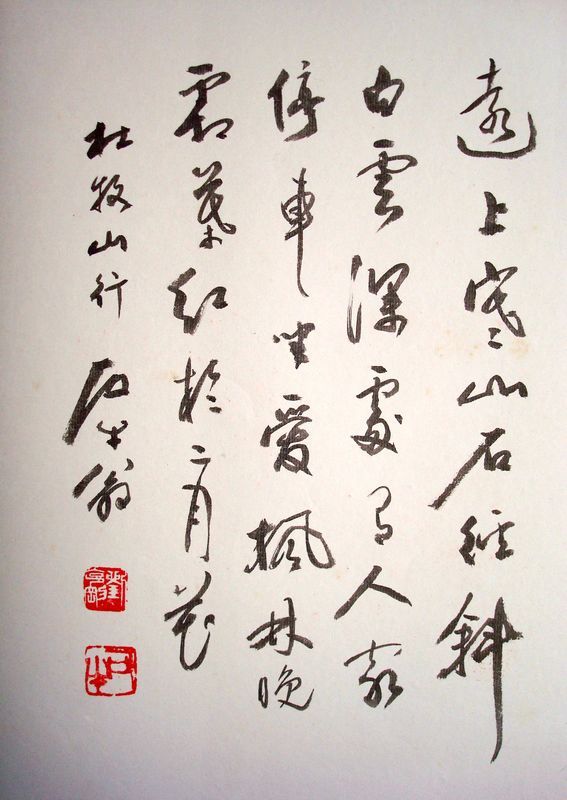 遠上寒山石徑斜
白雲深處有人家
停車坐愛楓林晚
霜葉紅於二月花
杜牧山行 石牛翁